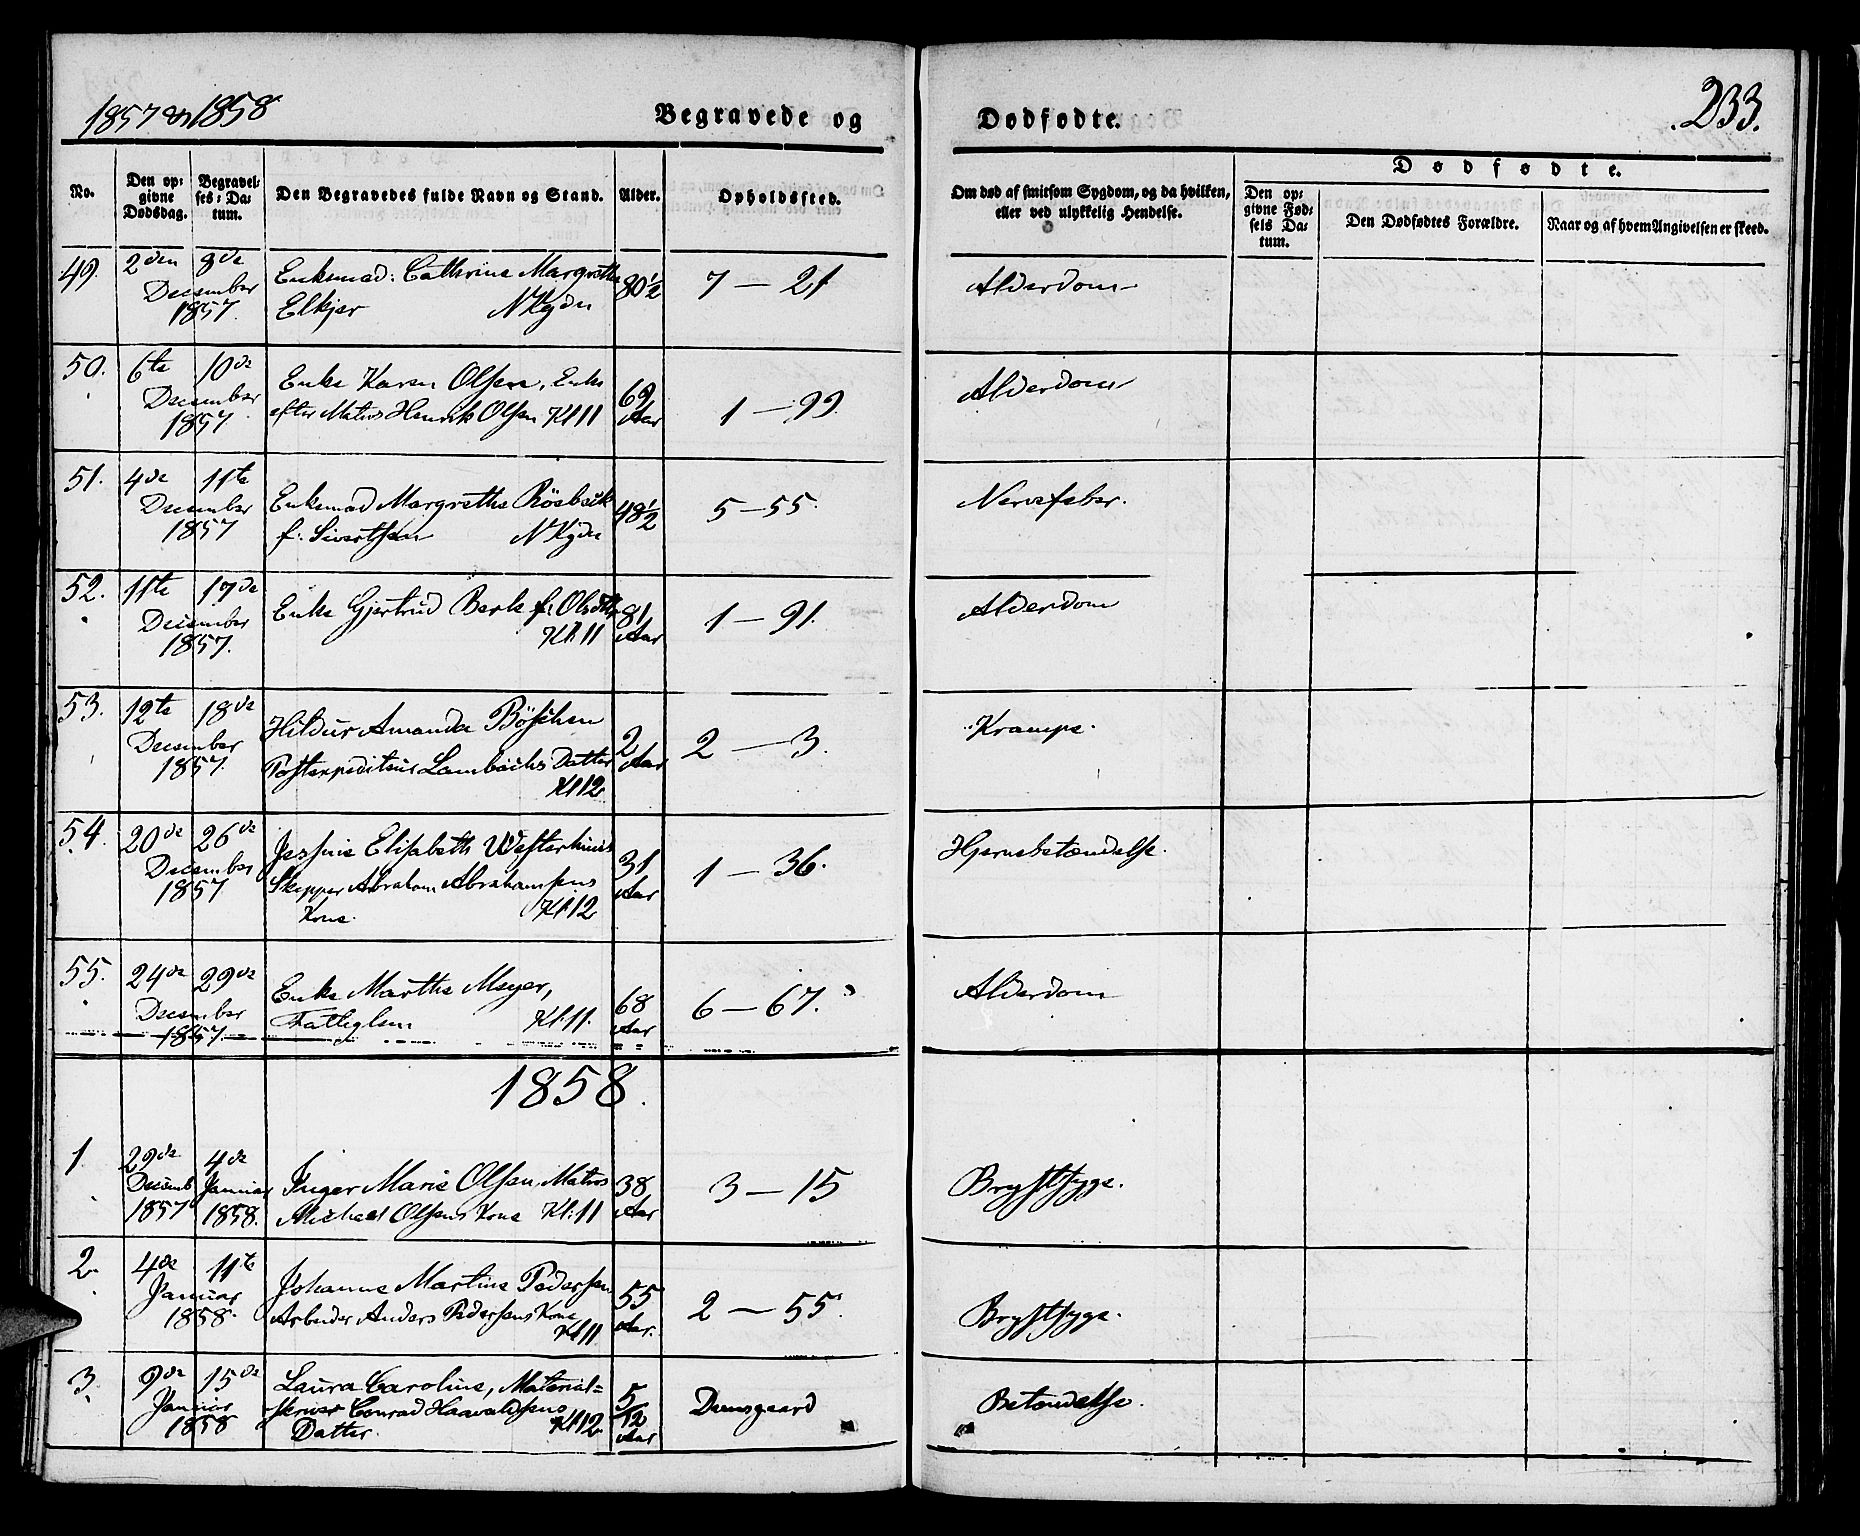 1857 & 1858 Begravede og Dødfødte. 233.
No. Den opgivne Dødsdag. Begravelses-Datum. Den Begravedes fulde Navn og Stand. Alder. Opholdssted. Om død af smitsom Sygdom, og da hvilken, eller ved ulykkelig Hendelse. Dødfødte. Den opgivne Fødsels Datum. Den Dødfødtes Forældre. Naar og af hvem Angivelsen er skeed.
49. 2den 8de Enkemad: Cathrine Margrethe 80½ 7 — 21 Alderdom
December 1857. Elkjer NKgdn
50. 6te 10de Enke Karen Olsen, Enke 69 Aar 1 — 99 Alderdom
December 1857 efter Matros Henrik Olsen Kl 11
51. 4de 11te Enkemad Margrethe Rösbach 48½ 5 — 55. Nervefeber.
December 1857 f: Sivertsen NKgdn
52. 11te 17de Enke Gjertrud Berle f: Olsdtter 81 Aar 1 — 91. Alderdom
December 1857. Kl. 11
53. 12te 18de Hildur Amanda Böschen 2 Aar 2 — 3. Krampe.
December 1857. Postexpediteur Lambachs Datter
Kl 12
54. 20de 26de Jessine Elisabeth Westerhuus 31 Aar 1 — 36. Hjernebetændelse.
December 1857 Skipper Abraham Abrahamsens
Kone. Kl. 12
55. 24de 29de Enke Marthe Meyer, 68 Aar 6 — 67. Alderdom
December 1857. Fattiglem Kl: 11.
1858.
1 29de Decemb 1857 4de Januar 1858. Inger Marie Olsen, Matros 38 Aar 3 — 15 Brystsyge.
Michael Olsens Kone Kl: 11
2. 4de 11te Johanne Martine Pedersen 55 Aar. 2 — 55. Brystsyge.
Januar 1858. Arbeider Anders Pedersens Kone
Kl 11
3. 9de 15de Laura Caroline, Material= 5/12 Aar Damsgaard Betændelse.
Januar 1858 skriver Conrad Haavaldsens
Datter. Kl 12